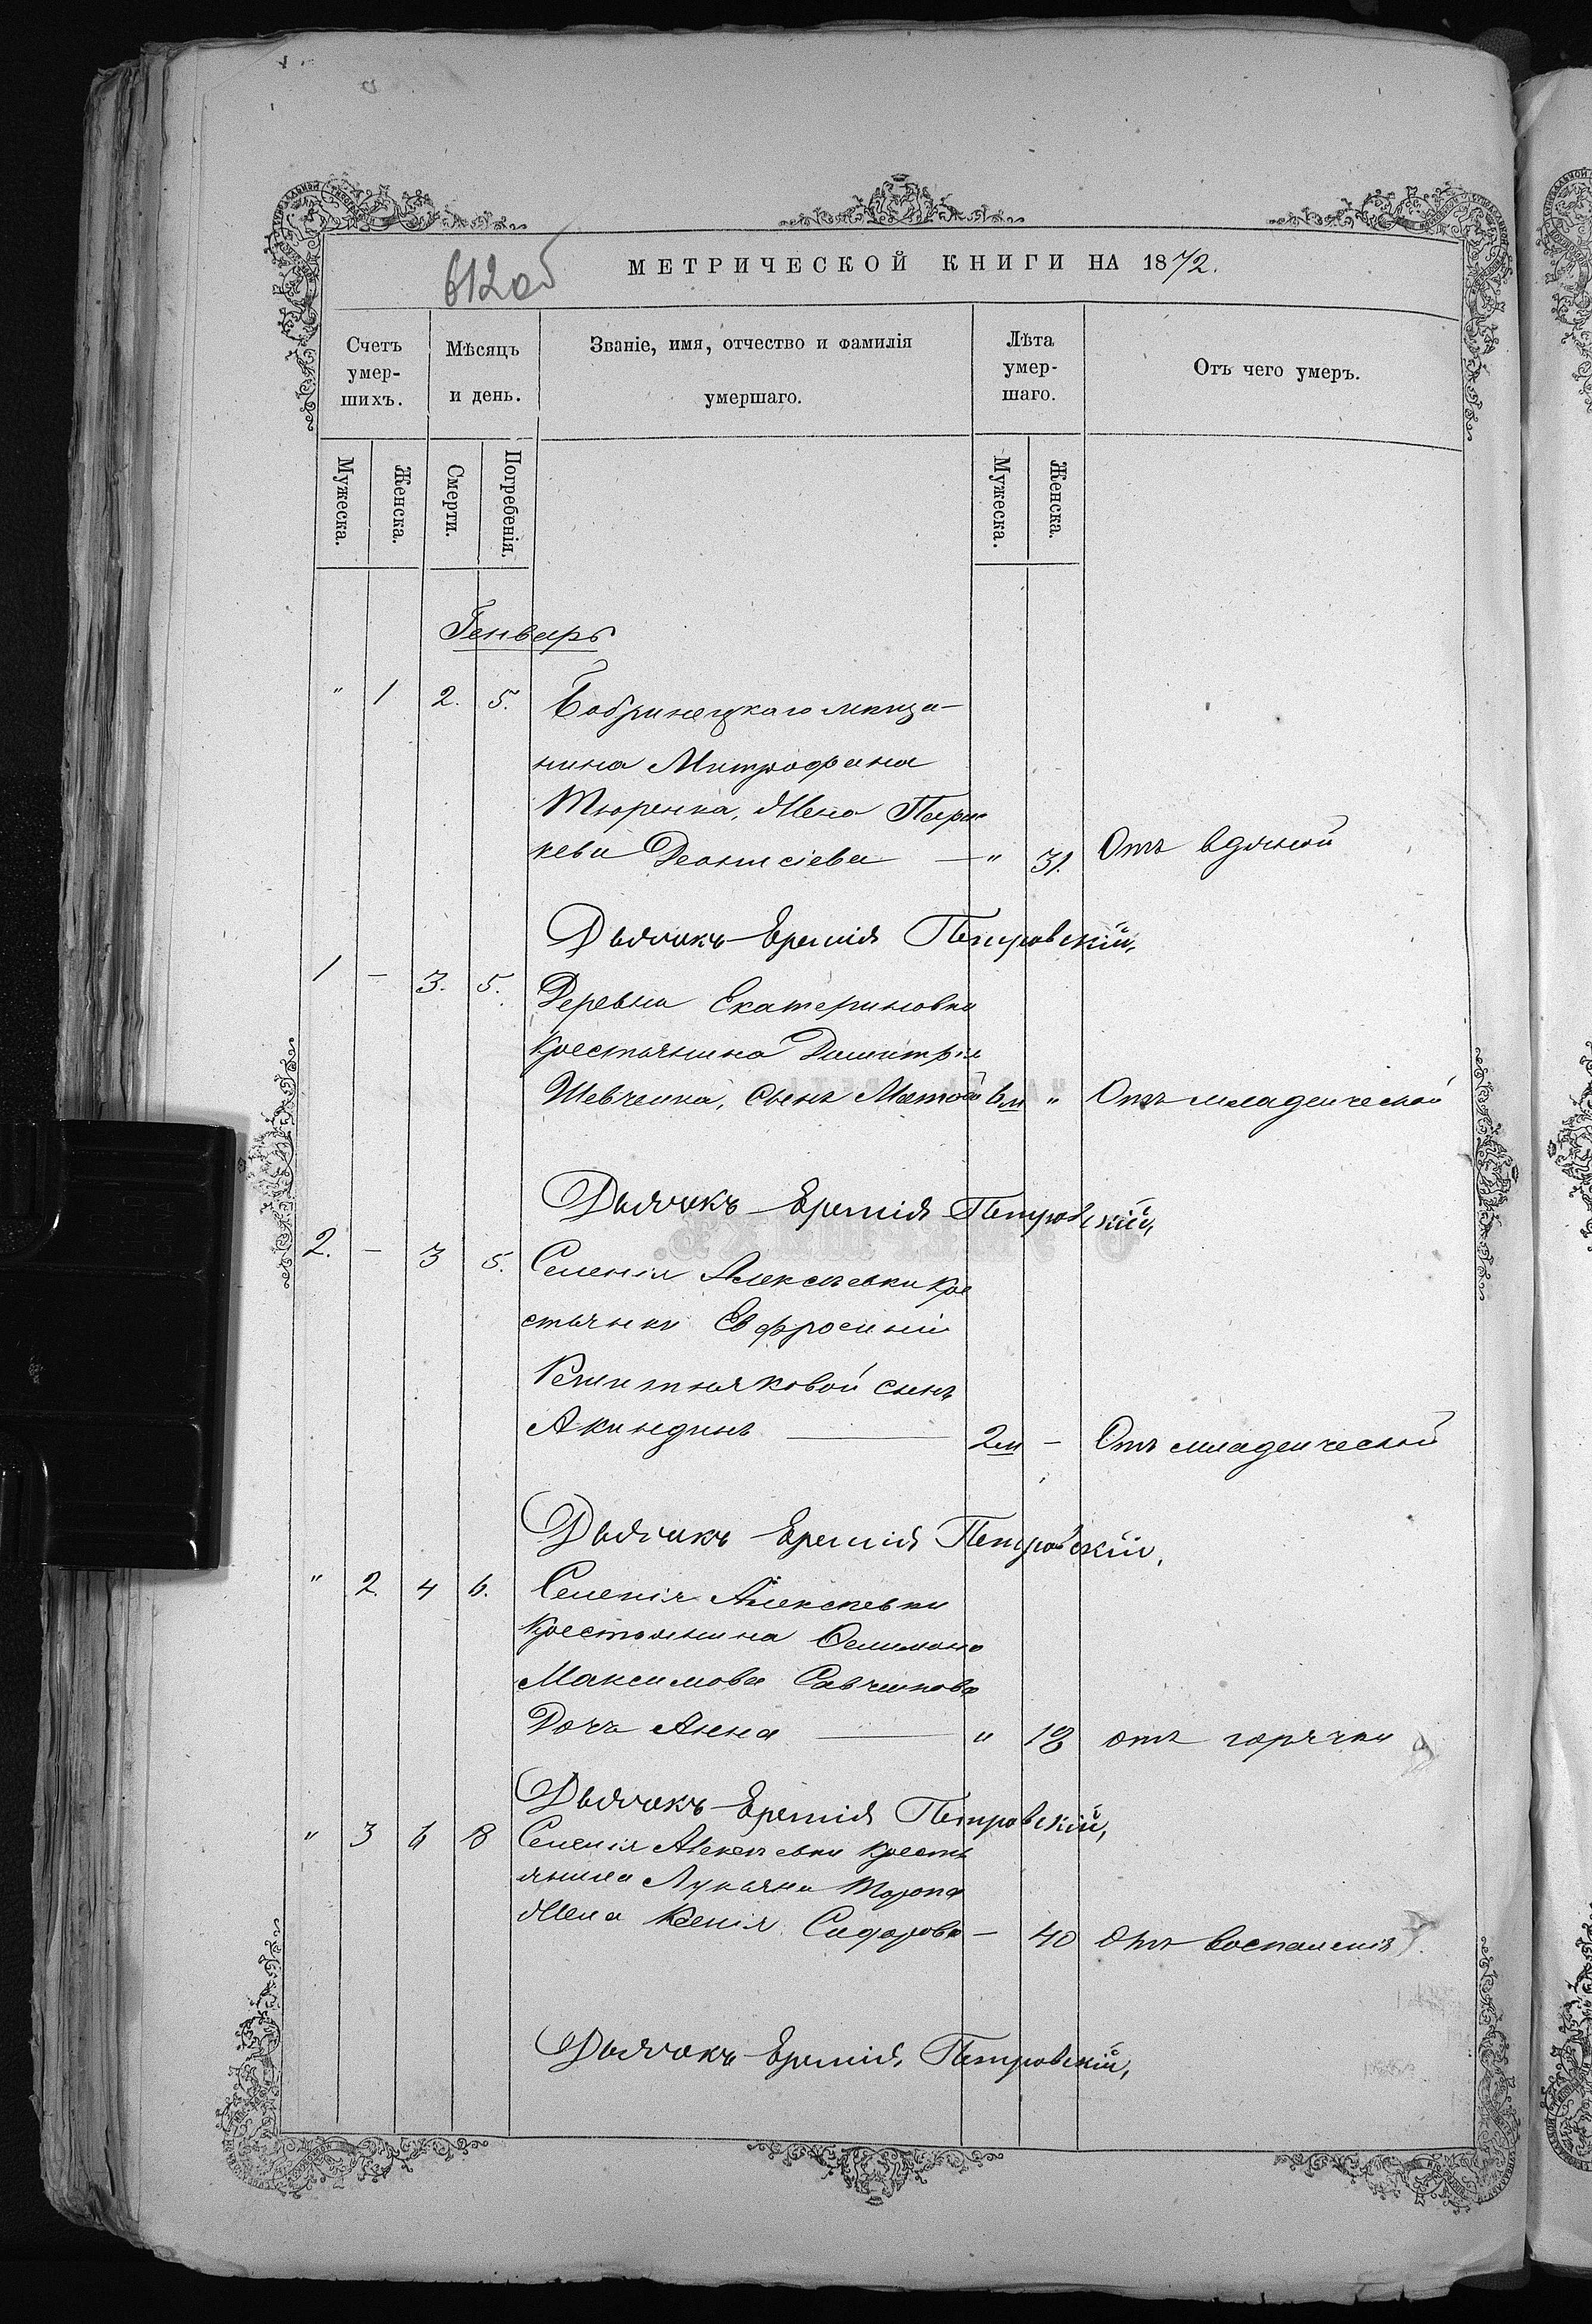 612об
МЕТРИЧЕСКОЙ КНИГИ НА 1872.
Счетъ умер-шихъ.
Мѣсяцъ и день.
Званіе, имя, отчество и фамилія умершаго.
Лѣта умер-шаго.
Отъ чего умеръ.
Мужеска.
Женска.
Смерти.
Погребенія.
Мужеска.
Женска.
Генварь
" 1 2. 5. Бобринецкаго мѣща-
нина Митрофана
Тюренка, Жена Парас
кева Деонисіева — " 31. Отъ вдяной
Дьячокъ Еремія Петровскій,
1 — 3. 5. Деревни Екатериновки
Крестьянина Димитрія
Шевченка, сынъ Матѳей 6м " Отъ младенческой
Дьячокъ Еремія Петровскій,
2. — 3 5. Селенія Алексѣевки Кре
стьянки Евфросиніи
Решитняковой сынъ
Акиндинъ — 2м — Отъ младенческой
Дьячокъ Еремія Петровскій,
" 2. 4 6. Селенія Алексѣевки
Крестьянина
Максимова Савченкова
Дочь Анна — " 18 отъ горячки
Дьячокъ Еремія Петровскій,
" 3 6 8 Селенія Алексѣевки Кресть
янина Лукьяна
Жена Ксенія Сидорова — 40 Отъ воспаленія
Дьячокъ Еремія Петровскій,